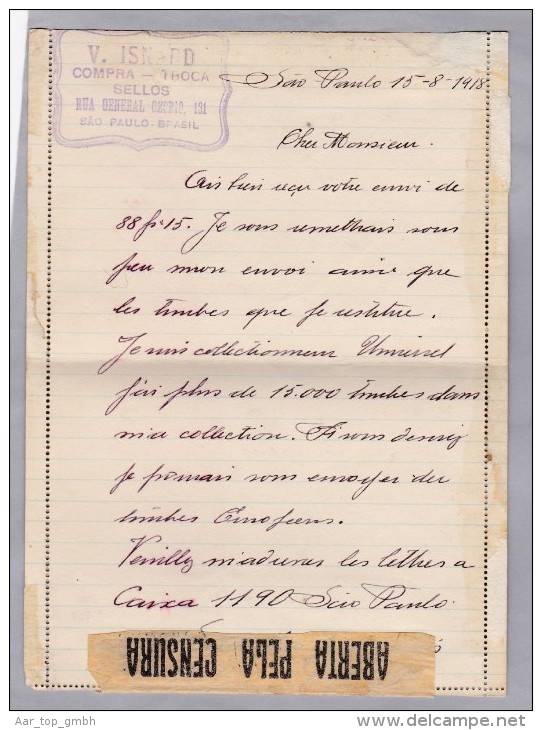 V. ISNARD
COMPRA — TROCA
SELLOS
RUA GENERAL OZORIO, 131
SÃO PAULO - BRASIL
São Paulo 15-8-1918
Cher Monsieur.
Ais bien reçu votre envoi de
88 frs 15. Je vous remettrais sous
peu mon envoi ainsi que
les timbres que je restitue.
Je suis collectionneur Universel
j'ai plus de 15.000 timbres dans
ma collection. Si vous desirez
je pourrais vous envoyer des
timbres Européens.
Veuillez m'adresser les lettres a
Caixa 1190 São Paulo
ABERTA PELA CENSURA
Aar_top_gmbh
www.delcampe.net